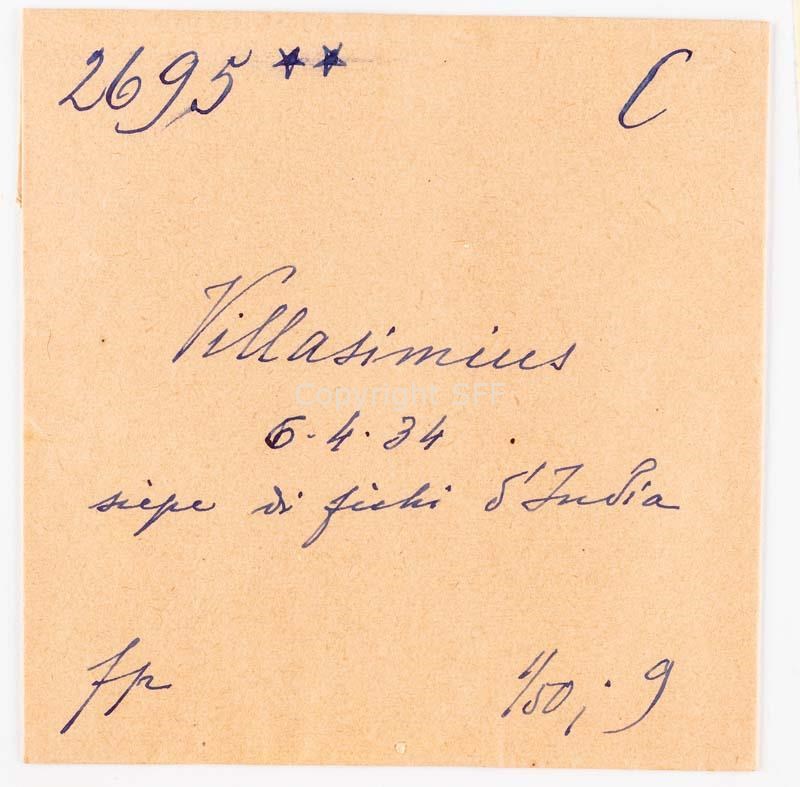 2695** C
Villasimius
Copyright SFF
6.4.34
siepe di fichi d'India
fp 1/50; 9